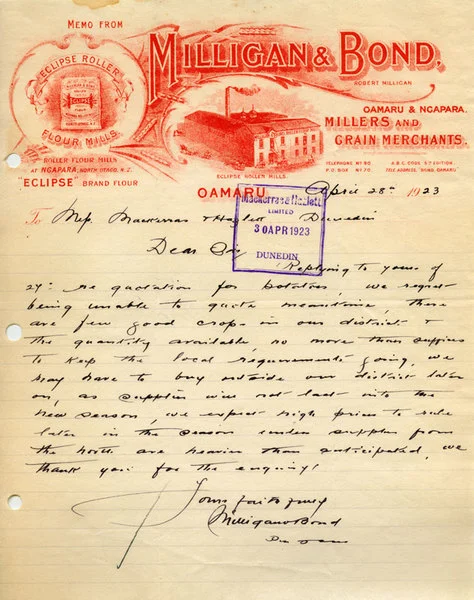 MEMO FROM
MILLIGAN & BOND,
ROBERT MILLIGAN
ECLIPSE ROLLER
FLOUR MILLS
ECLIPSE
ROLLER FLOUR MILLS
AT NGAPARA, NORTH OTAGO, N.Z.
"ECLIPSE" BRAND FLOUR
ECLIPSE ROLLER MILLS
OAMARU & NGAPARA.
MILLERS AND
GRAIN MERCHANTS.
TELEPHONE Nº 90
P.O. BOX Nº 70
A.B.C. CODE 5TH EDITION
TELE. ADDRESS "BOND, OAMARU
OAMARU April 28th 1923
To Messrs Mackerras & Hazlett Dunedin
Mackerras & Hazlett
LIMITED
30 APR 1923
DUNEDIN
Dear Sirs
Replying to yours of
27th re quotation for potatoes, we regret
being unable to quote meantime, there
are few good crops in our district &
the quantity available, no more than suffices
to keep the local requirements going, we
may have to buy outside our district later
on, as supplies will not last into the
new season, we expect high prices to rule
later in the season unless supplies from
the north are heavier than anticipated, we
thank you for the enquiry!
Yours faithfully
Milligan & Bond